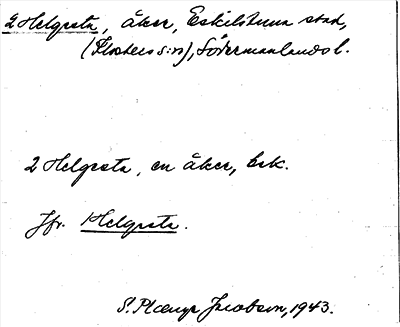 2 Helgesta, åker, Eskilstuna stad,
(Klosters s:n), Södermanlands l.
2 Helgesta, en åker, bek.
Jfr. Helgesta.
S. Plænge Jacobson, 1943.